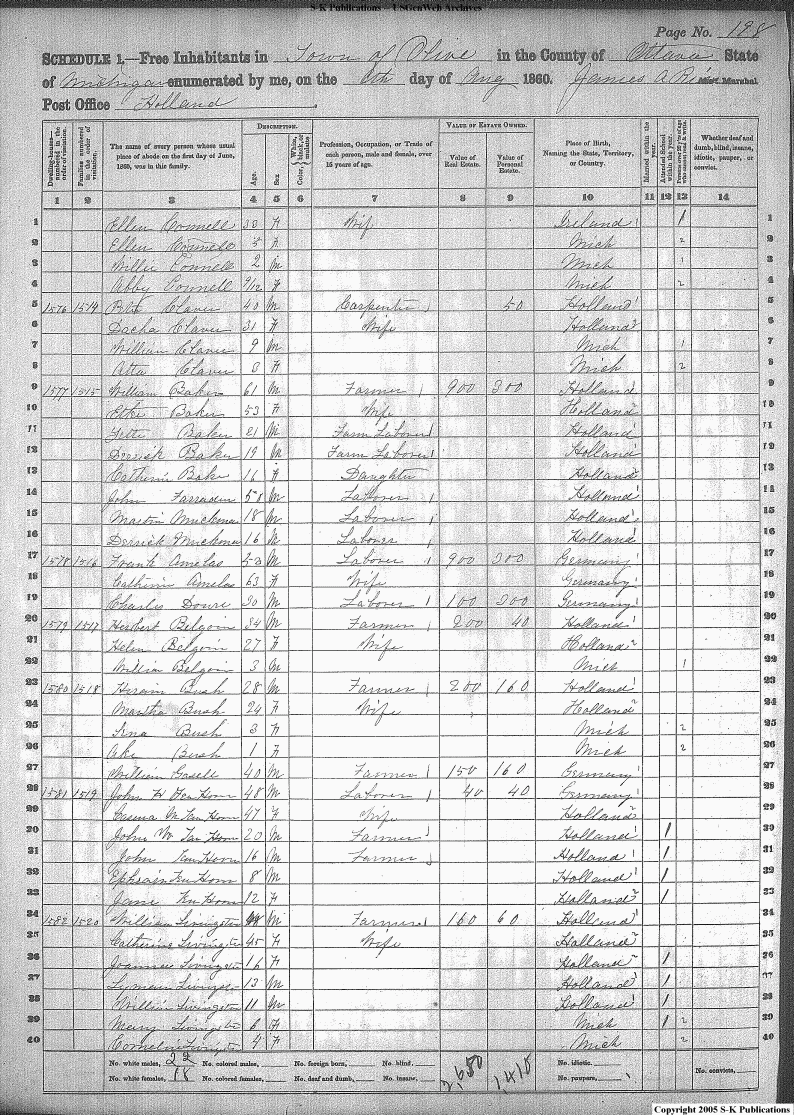 S-K Publications – USGenWeb Archives
Page No. 198
SCHEDULE 1.—Free Inhabitants in Town of Olive in the County of Ottawa State
of Michigan enumerated by me, on the 6th day of Aug 1860. James A. Asst Marshal
Post Office Holland
DESCRIPTION. VALUE OF ESTATE OWNED.
Dwelling-houses—numbered in the order of visitation. Families numbered in the order of visitation. The name of every person whose usual place of abode on the first day of June, 1860, was in this family. Age. Sex Color, White, black, or mulatto Profession, Occupation, or Trade of each person, male and female, over 15 years of age. Value of Real Estate. Value of Personal Estate. Place of Birth, Naming the State, Territory, or Country. Married within the year. Attended School within the year. Whether deaf and dumb, blind, insane, idiotic, pauper, or convict.
1 2 3 4 5 6 7 8 9 10 11 12 13 14
1 Ellen Connell 30 F Wife Ireland 1 1
2 Ellen Connell F Mich 2 2
3 Willie Connell 2 M Mich 1 3
4 Abby Connell 9/12 F Mich 2 4
5 1576 1514 Claver 40 M Carpenter 50 Holland 5
6 Dacha Claver 31 F Wife Holland 6
7 William Claver 9 M Mich 1 7
8 Claver F Mich 2 8
9 1577 1515 William Baker 61 M Farmer 900 300 Holland 9
10 Baker 53 F Wife Holland 10
11 Baker 21 M Farm Laborer Holland 11
12 Derrick Baker 19 M Farm Laborer Holland 12
13 Catherin Bake 16 F Daughter Holland 13
14 John M Laborer Holland 14
15 Martin 18 M Laborer Holland 15
16 Derrick 16 M Laborer Holland 16
17 1578 1516 Frank Amelas M Laborer 900 300 Germany 17
18 Catherin Amelas 63 F Wife Germany 18
19 Charles 30 M Laborer 100 300 Germany 19
20 1579 1517 Herbert Belgoin 34 M Farmer 200 40 Holland 20
21 Helen Belgoin 27 F Wife Holland 21
22 William Belgoin 3 M Mich 1 22
23 1580 1518 Hiram Bush 28 M Farmer 200 160 Holland 23
24 Martha Bush 24 F Wife Holland 24
25 Bush 3 F Mich 2 25
26 Ake Bush 1 F Mich 2 26
27 William Gosell 40 M Farmer 150 160 Germany 27
28 1581 1519 John H Van Horn 48 M Laborer 40 40 Germany 28
29 Van Horn 47 F Wife Holland 29
30 John W Van Horn 20 M Farmer Holland 1 30
31 John Van Horn 16 M Farmer Holland 1 31
32 Ephraim Van Horn 8 M Holland 1 32
33 Jane Van Horn 12 F Holland 1 33
34 1582 1520 William Livingston M Farmer 160 60 Holland 34
35 Catherine Livingston 45 F Wife Holland 35
36 Joannes Livingston 16 F Holland 1 36
37 Lyman Livingston 13 M Holland 1 37
38 William Livingston 11 M Holland 1 38
39 Mary Livingston 6 F Mich 1 2 39
40 Cornelia Livingston 4 F Mich 2 40
No. white males, 22 No. colored males, No. foreign born, No. blind, No. idiotic, No. convicts,
No. white females, 18 No. colored females, No. deaf and dumb, No. insane, 2,650 1,410 No. paupers,
Copyright 2005 S-K Publications